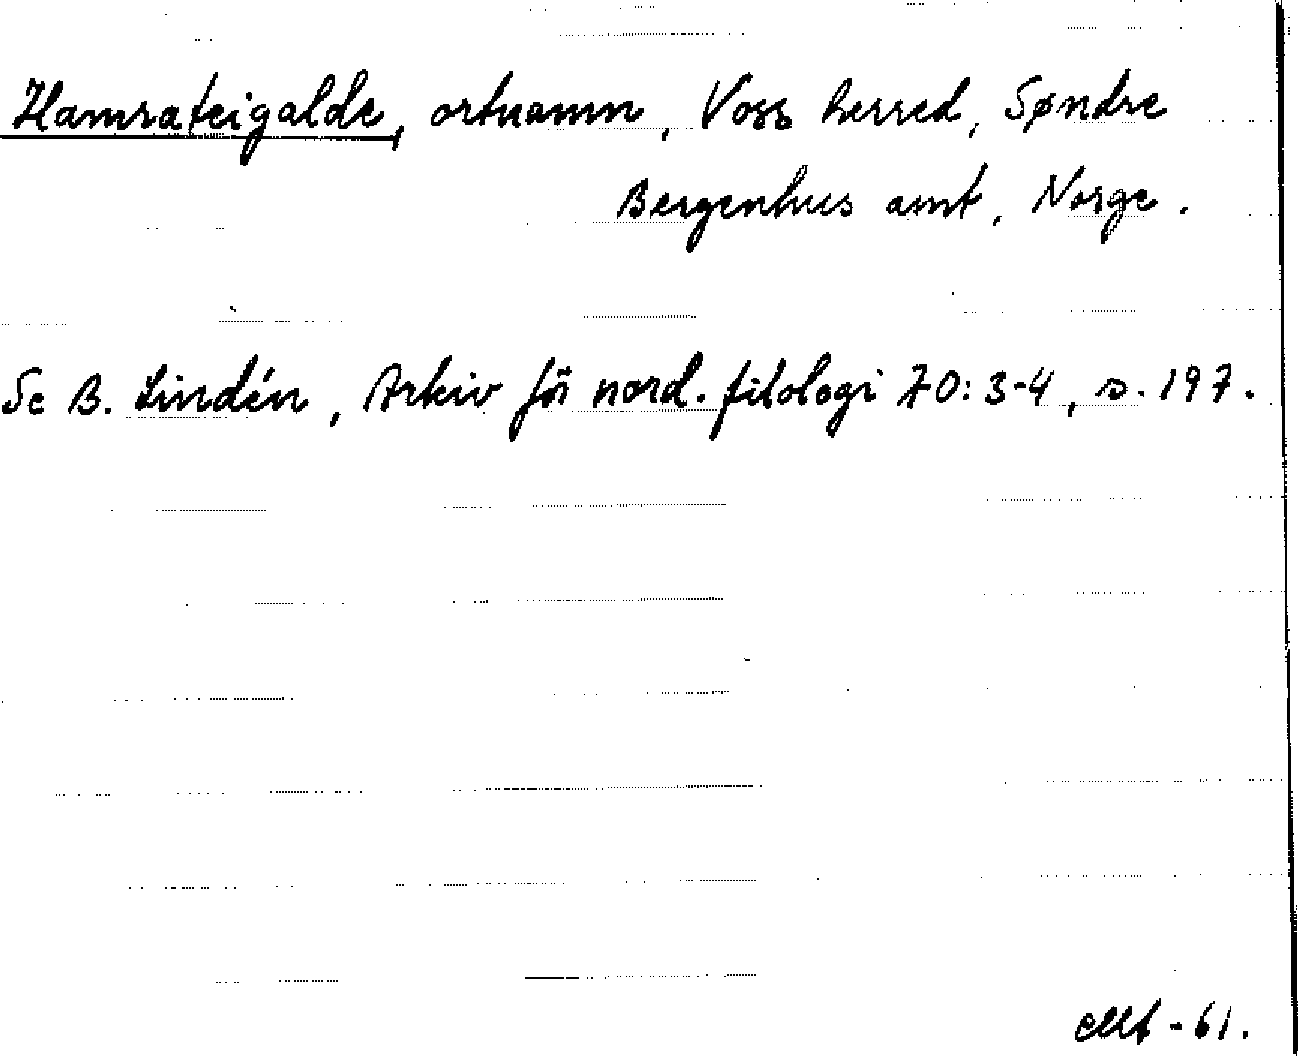 Hamrateigalde, ortnamn, Voss herred, Søndre
Bergenhus amt, Norge.
Se B. Lindén, Arkiv för nord. filologi 70: 3-4, s. 197.
-61.